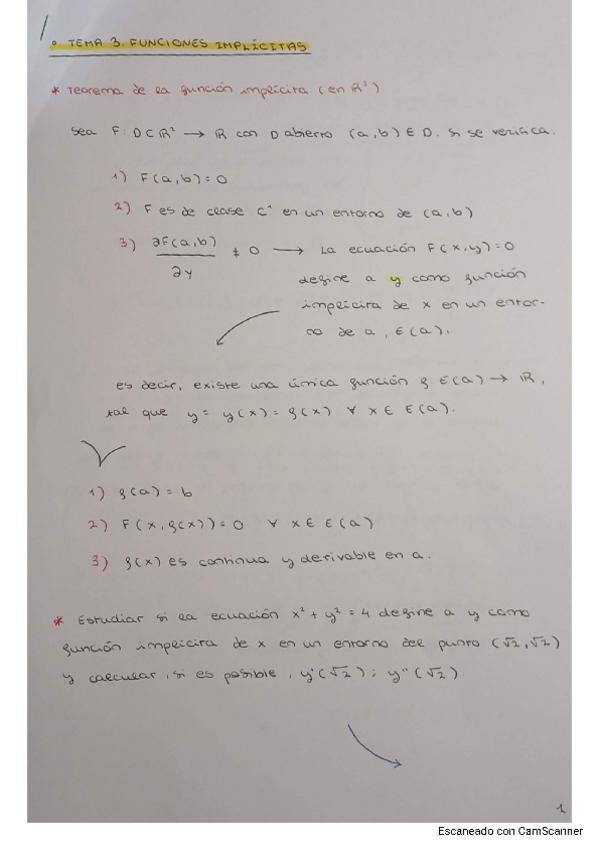 ° TEMA 3. FUNCIONES IMPLÍCITAS
* Teorema de la función implícita (en R²)
Sea F: D⊂R² → R con D abierto (a,b) ∈ D. Si se verifica.
1) F(a,b)=0
2) F es de clase C¹ en un entorno de (a,b)
3) ∂F(a,b)/∂y ≠ 0 → La ecuación F(x,y)=0
define a y como función
implícita de x en un entor-
no de a, E(a).
es decir, existe una única función f: E(a) → R,
tal que y = y(x) = f(x) ∀ x ∈ E(a).
1) f(a) = b
2) F(x, f(x)) = 0 ∀ x ∈ E(a)
3) f(x) es continua y derivable en a.
* Estudiar si la ecuación x² + y² = 4 define a y como
función implícita de x en un entorno del punto (√2,√2)
y calcular, si es posible, y'(√2); y''(√2).
1
Escaneado con CamScanner